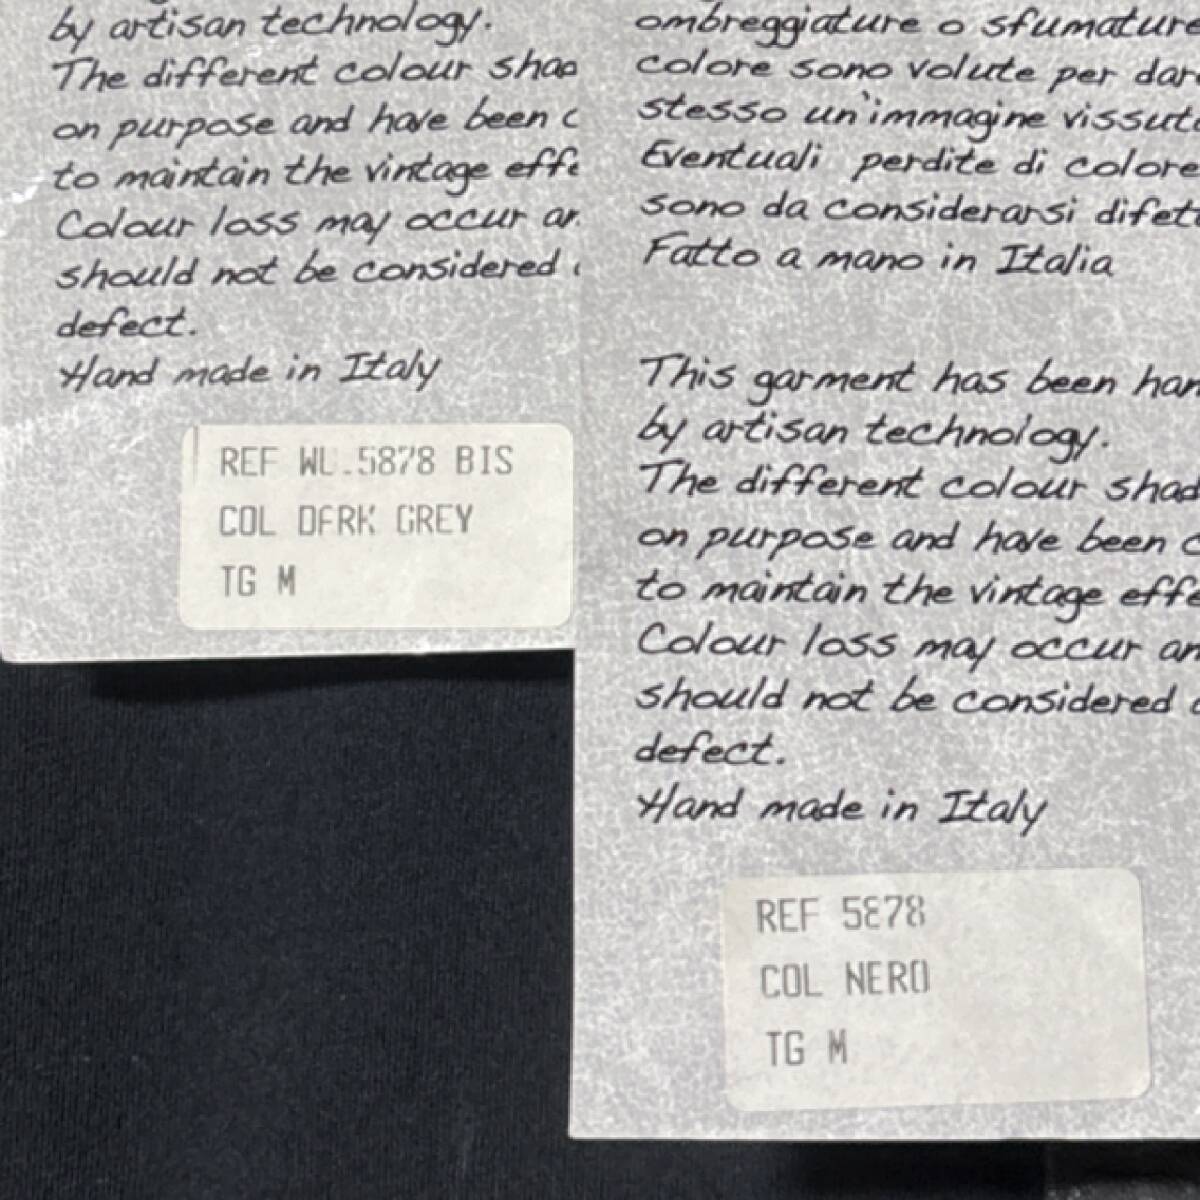 by artisan technology.
The different colour shad
on purpose and have been c
to maintain the vintage effe
Colour loss may occur an
should not be considered
defect.
Hand made in Italy
REF WL.5878 BIS
COL DARK GREY
TG M
ombreggiature o sfumature
colore sono volute per dar
stesso un'immagine vissut
Eventuali perdite di colore
sono da considerarsi difet
Fatto a mano in Italia
This garment has been han
by artisan technology.
The different colour shad
on purpose and have been c
to maintain the vintage effe
Colour loss may occur an
should not be considered a
defect.
Hand made in Italy
REF 5878
COL NERO
TG M